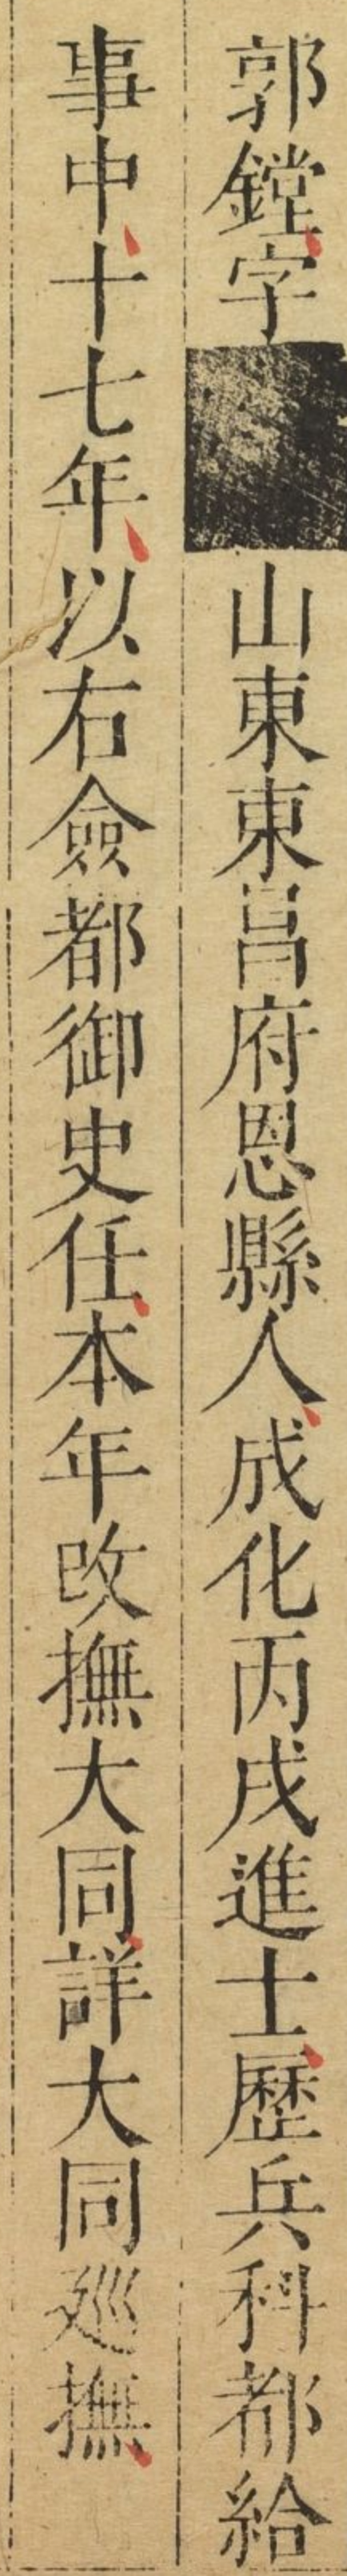 郭鏜字山東東昌府恩縣人成化丙戌進士歷兵科都給
事中十七年以右僉都御史任本年改撫大同詳大同巡撫